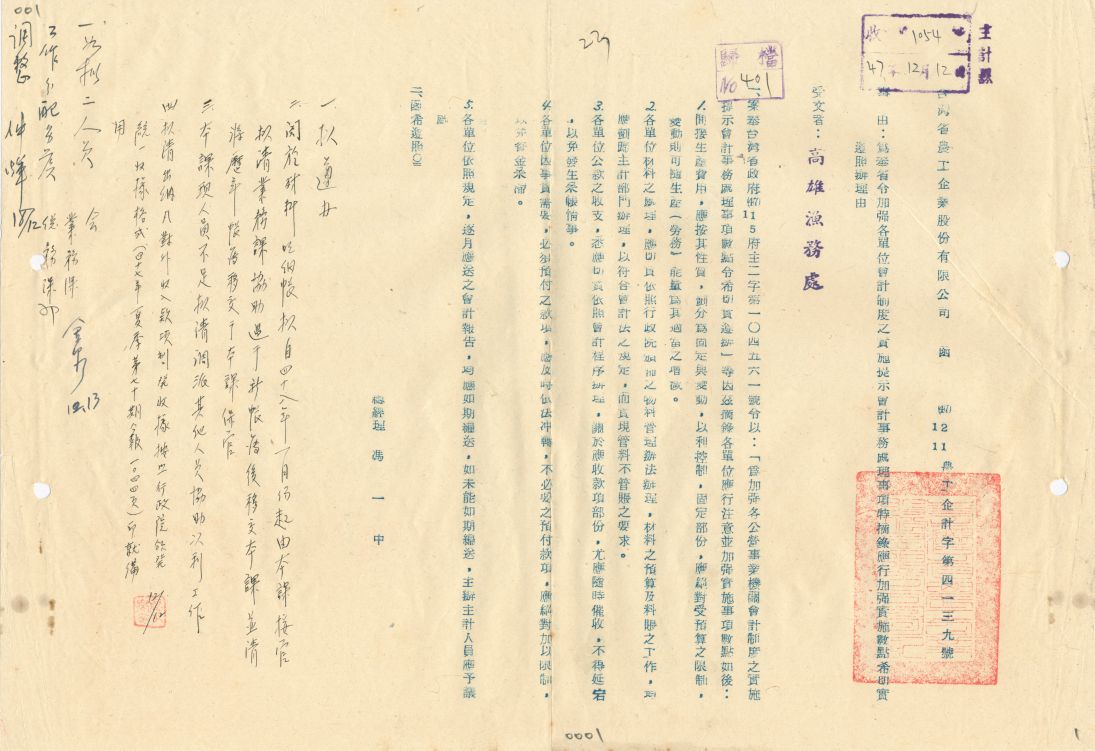 主計課
收 1054
47年12月12
台灣省農工企業股份有限公司 函 1211 農工企計字第四一三九號
事由:為奉省令加强各單位會計制度之實施提示會計事務處理事項特摘錄應行加强實施數點希切實
遵照辦理由
受文者:高雄漁務處
歸檔
NO 401
一、案奉台灣省政府 115府主二字第一〇四五六一號令以:「為加強各公營事業機關會計制度之實施
提示會計事務處理事項數點令希切實遵辦」等因茲摘錄各單位應行注意並加强實施事項數點如後:
1.間接生產費用,應按其性質,劃分為固定與變動,以利控制,固定部份,應絕對受預算之限制,
變動則可隨生產(勞務)能量為其適當之增減。
2.各單位材料之處理,應切實依照行政院頒布之物料管理辦法辦理,材料之預算及料賬之工作,均
應劃歸主計部門辦理,以符合會計法之規定,而實現管料不管賬之要求。
3.各單位公款之收支,悉應切實依照會計程序辦理,關於應收款項部份,尤應隨時催收,不得延宕
,以免發生呆帳情事。
4.各單位因事實需要,必須預付之款項,應及時依法冲轉,不必要之預付款項,應絕對加以限制,
5.各單位依照規定,逐月應送之會計報告,均應如期編送,如未能如期編送,主辦主計人員應予議
處
二、函希遵照〇
總經理 馮一中
一、擬遵办
二、關於材料明細帳擬自四十八年一月份起由本課接管
擬請業務課協助過于新帳簿後移交本課並請
將歷年帳簿移交于本課保管
三、本課現人員不足擬請調派其他人員協助以利工作
四、擬請出納凡對外收入款項制發收據按照行政院頒發
統一收據格式(四十七年夏季第七十期公報一〇四四頁)印就備
用
12/12
會
業務課
總務課
12.13
一、如擬二、人員
工作分配
調整
22
001
0001
1